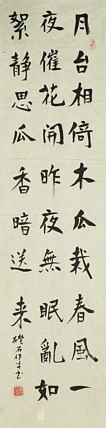 月台相倚木瓜栽春風一
夜催花開昨夜無眠亂如
絮靜思瓜香暗送來